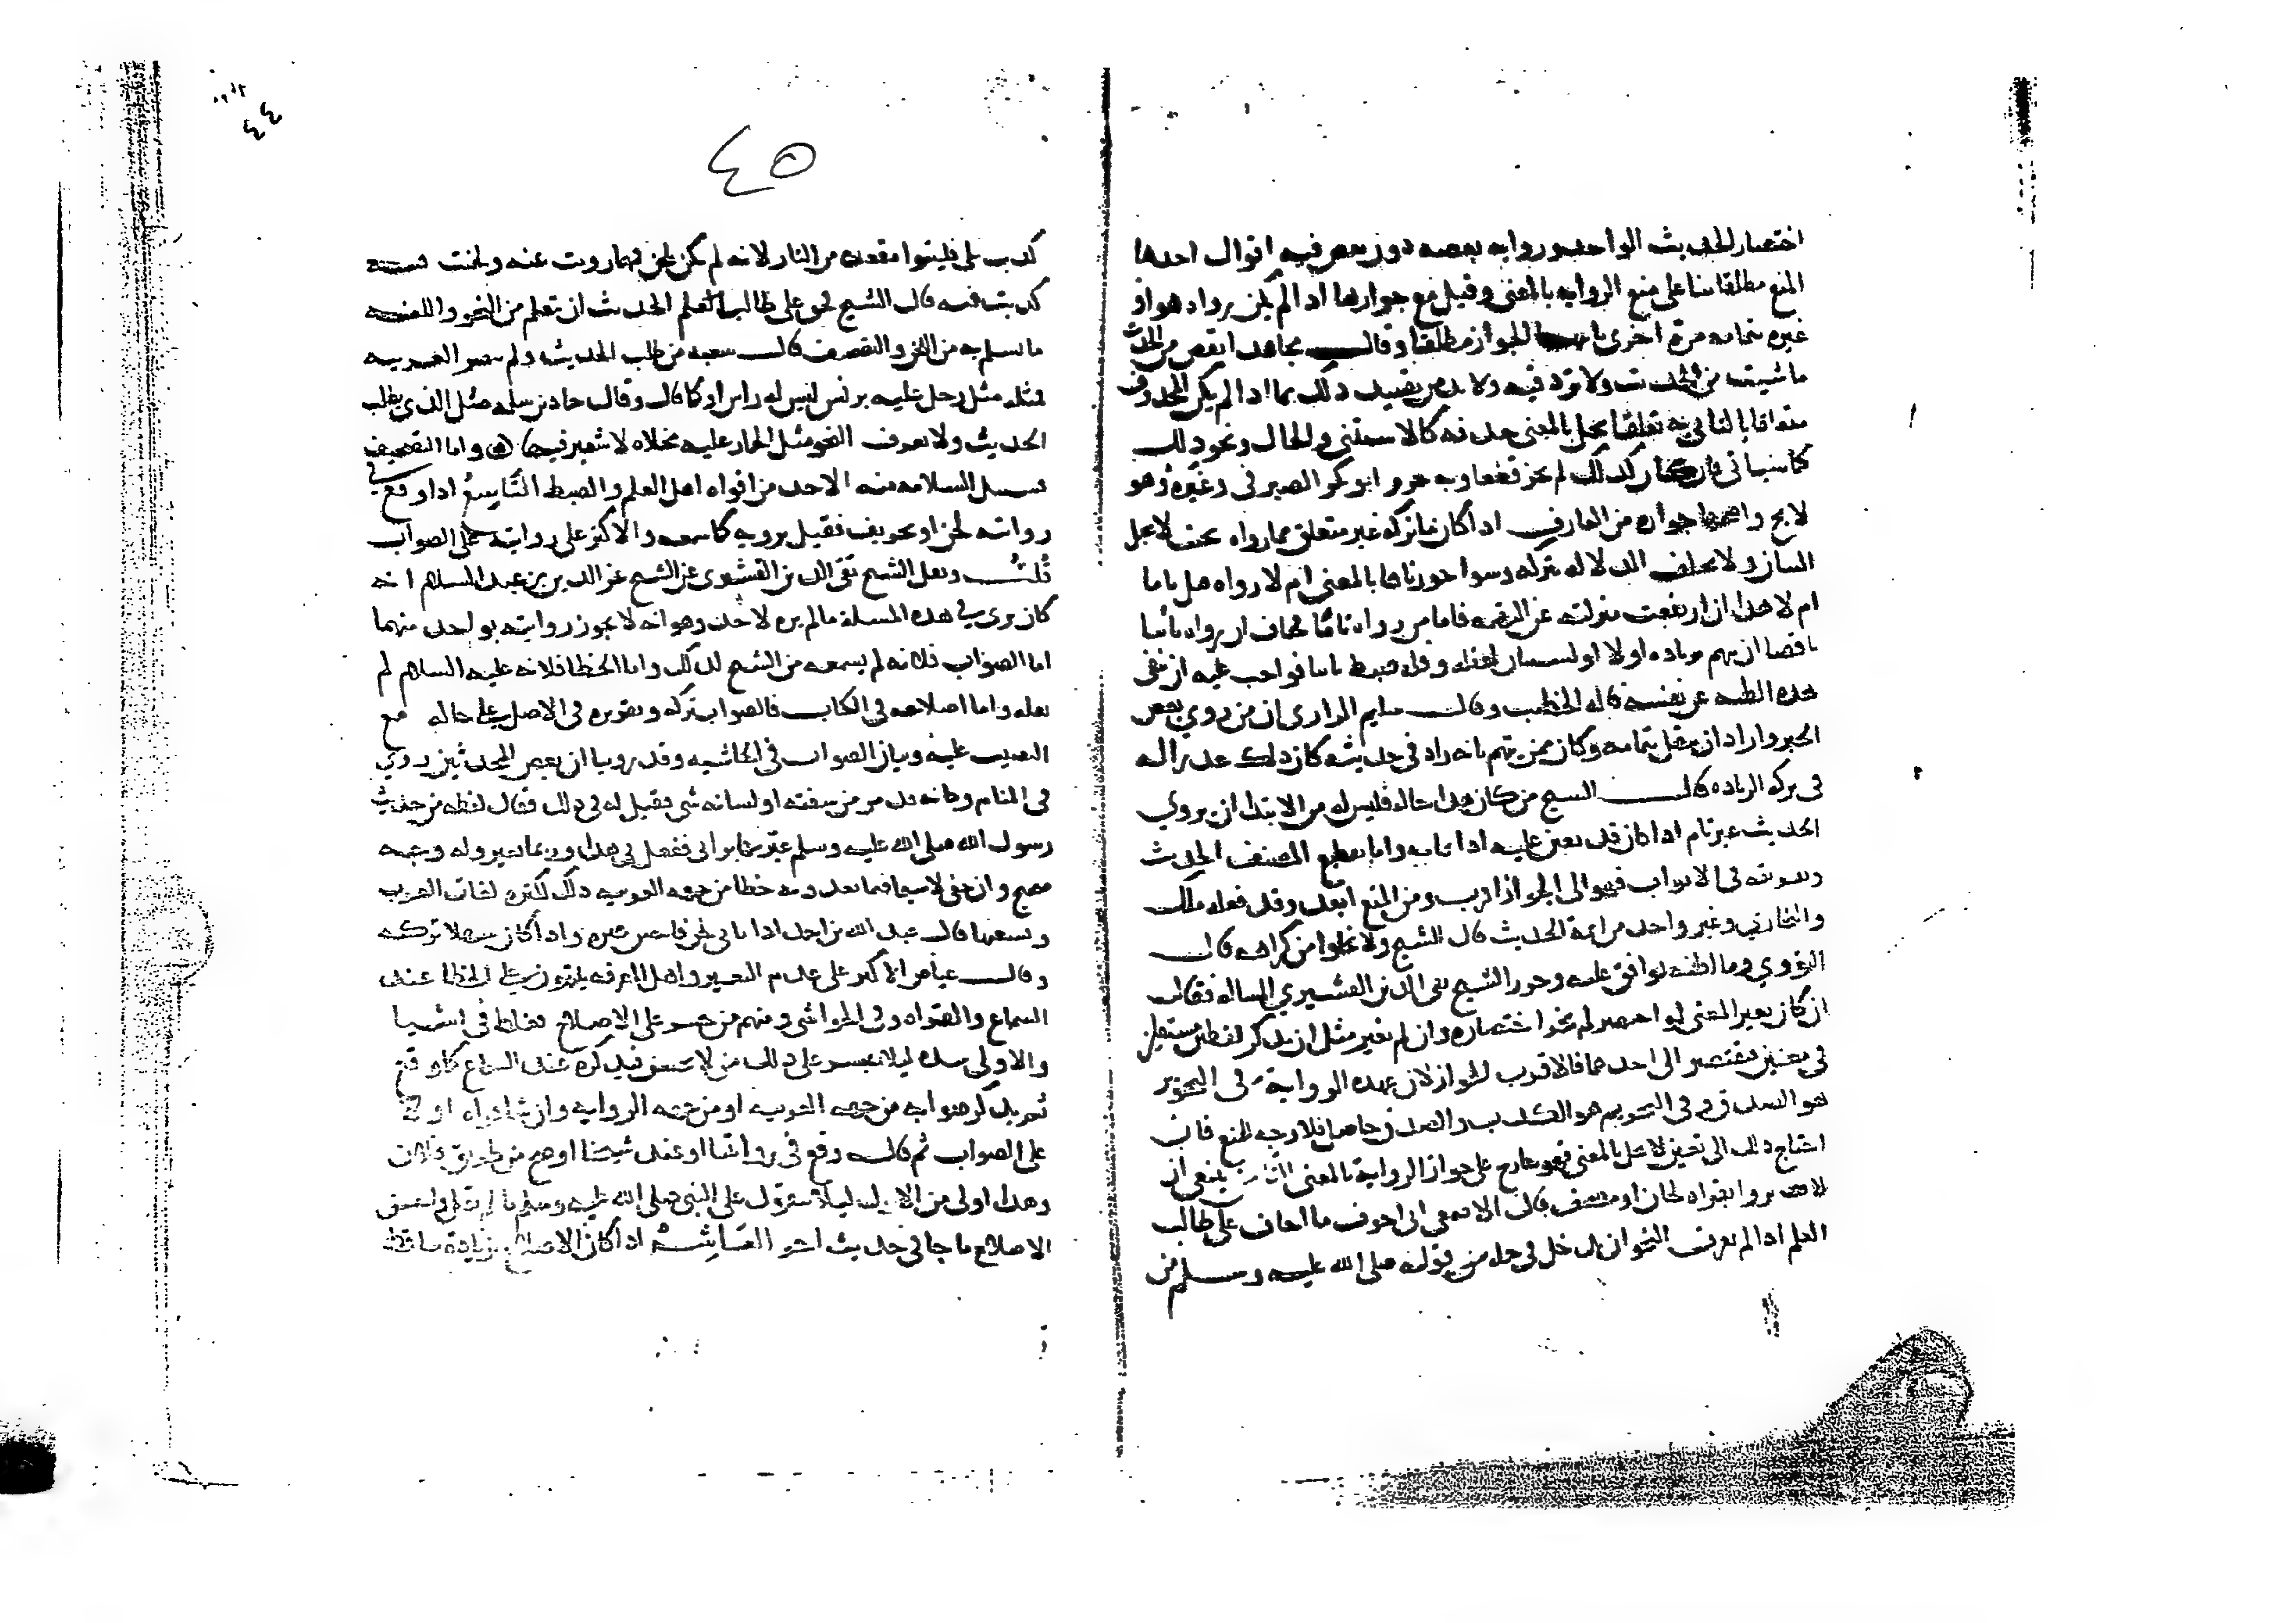 اختصار الحديث الواحد ورواية بعضه دون بعض فيه اقوال احدها
المنع مطلقا بنا على منع الرواية بالمعنى وقيل مع جوازها اذا لم يكن رواه هو او
غيره بتمامه مرة اخرى الجواز مطلقا وقال مجاهد انقص من الحديث
ما شيت من الحديث ولا تزد فيه ولا بد من تقييد ذلك بما اذا لم يكن المحذوف
متعلقا بالماتي به تعلقا يخل بالمعنى حذفه كالاستثنى والحال ونحو ذلك
كما سياتي فان كان كذلك لم يجز قطعا وبه جزم ابو بكر الصيرفي وغيره وهو
لايح واصحها جوازه من العارف اذا كان ما تركه غير متعلق بما رواه بحيث لا يخل
البيان ولا يختلف الدلالة بتركه وسوا جوزناها بالمعنى ام لا رواه قبل تاما
ام لا هذا ان ارتفعت منزلته عن التهمة فاما من رواه تاما فخاف ان رواه ثانيا
ناقصا ان يتهم بزيادة اولا او لنسيان لغفلة وقلة ضبط ثانيا فواجب عليه ان ينفي
هذه الظنة عن نفسه قاله الخطيب وقال سليم الرازي ان من روى بعض
الخبر واراد ان ينقل تمامه وكان ممن يتهم بانه زاد في حديثه كان ذلك عذرا له
في تركه الزيادة قال الشيخ من كان هذا حاله فليس له من الابتدا ان يروي
الحديث غير تام اذا كان قد تعين عليه اداء تمامه واما تقطيع المصنف الحديث
وتفريقه في الابواب فهو الى الجواز اقرب ومن المنع ابعد وقد فعله ملك
والبخاري وغير واحد من ايمة الحديث قال الشيخ ولا يخلوا من كراهة قال
النووي وما اظنه يوافق عليه وجوز الشيخ تقي الدين القشيري المسالة فقال
ان كان تغير المعنى لو اختصر لم يجز اختصاره وان لم يغير مثل ان يذكر لفظين مستقلين
في معنيين فيقتصر الى احدهما فالاقرب الجواز لان عمدة الرواية في التجويز
هو الصدق وفي التحريم هو الكذب والصدق حاصل فلا وجه للمنع فان
احتاج ذلك الى تغيير لا يخل بالمعنى فهو خارج على جواز الرواية بالمعنى الثامن ينبغي ان
لا يروا بقراه لحان او مصحف قال الاصمعي ان اخوف ما اخاف على طالب
العلم اذا لم يعرف النحو ان يدخل في جملة من قوله صلى الله عليه وسلم من
٤٥
كذب علي فليتبوا مقعده من النار لانه لم يكن يلحن فمهما رويت عنه ولحنت فيه
كذبت فيه قال الشيخ فحق على طالب العلم الحديث ان يتعلم من النحو واللغة
ما يسلم به من اللحن والتصحيف قال شعبة من طلب الحديث ولم يبصر العربية
فمثله مثل رجل عليه برنس ليس له راس او كما قال وقال حماد بن سلمه مثل الذي يطلب
الحديث ولا يعرف النحو مثل الحمار عليه مخلاة لا شعير فيها واما التصحيف
فسبيل السلامة منه الاخذ من افواه اهل العلم والضبط التاسع اذا وقع في
روايته لحن او تحريف فقيل يرويه كما سمعه والاكثر على روايته على الصواب
قلت ونقل الشيخ تقي الدين القشيري عن الشيخ عز الدين بن عبد السلام انه
كان يرى في هذه المسلة ما لم يره لاحد وهو انه لا يجوز روايته بواحد منهما
اما الصواب فلانه لم يسمعه من الشيخ كذلك واما الخطا فلانه عليه السلام لم
يقله واما اصلاحه في الكتاب فالصواب تركه وتقريره في الاصل على حاله مع
التضبيب عليه وبيان الصواب في الحاشيه وقد روينا ان بعض المحدثين روي
في المنام وكانه قد مر من شفته او لسانه شي فقيل له في ذلك فقال لفظه من حديث
رسول الله صلى الله عليه وسلم غيرتها برايي ففعل بي هذا وربما تغير وله وجه
صحيح وان خفي لا سيما فيما يعدونه خطا من جهة العربيه ذلك لكثره لغات العرب
وسعتها قال عبد الله بن احمد اذا مر بابي لحن فاحش غيره واذا كان سهلا تركه
وقال عياض الاكثر على عدم التغيير واهل المعرفه ينبهون على الخطا عند
السماع والقراه وفي الحواشي ومنهم من جسر على الاصلاح فغلط في اشيا
والاولى سده ليلا يجسر على ذلك من لا يحسن فيذكره عند السماع كما وقع
ثم يذكر صوابه من جهة العربيه او من جهة الرواية وان شا قراه اولا
على الصواب ثم قال وقع في روايتنا او عند شيخنا او هو من طريق فلان
وهذا اولى من الاول ليلا يتقول على النبي صلى الله عليه وسلم ما لم يقل واحسن
الاصلاح ما جا في حديث اخر العاشر اذا كان الاصلاح بزيادة ساقط